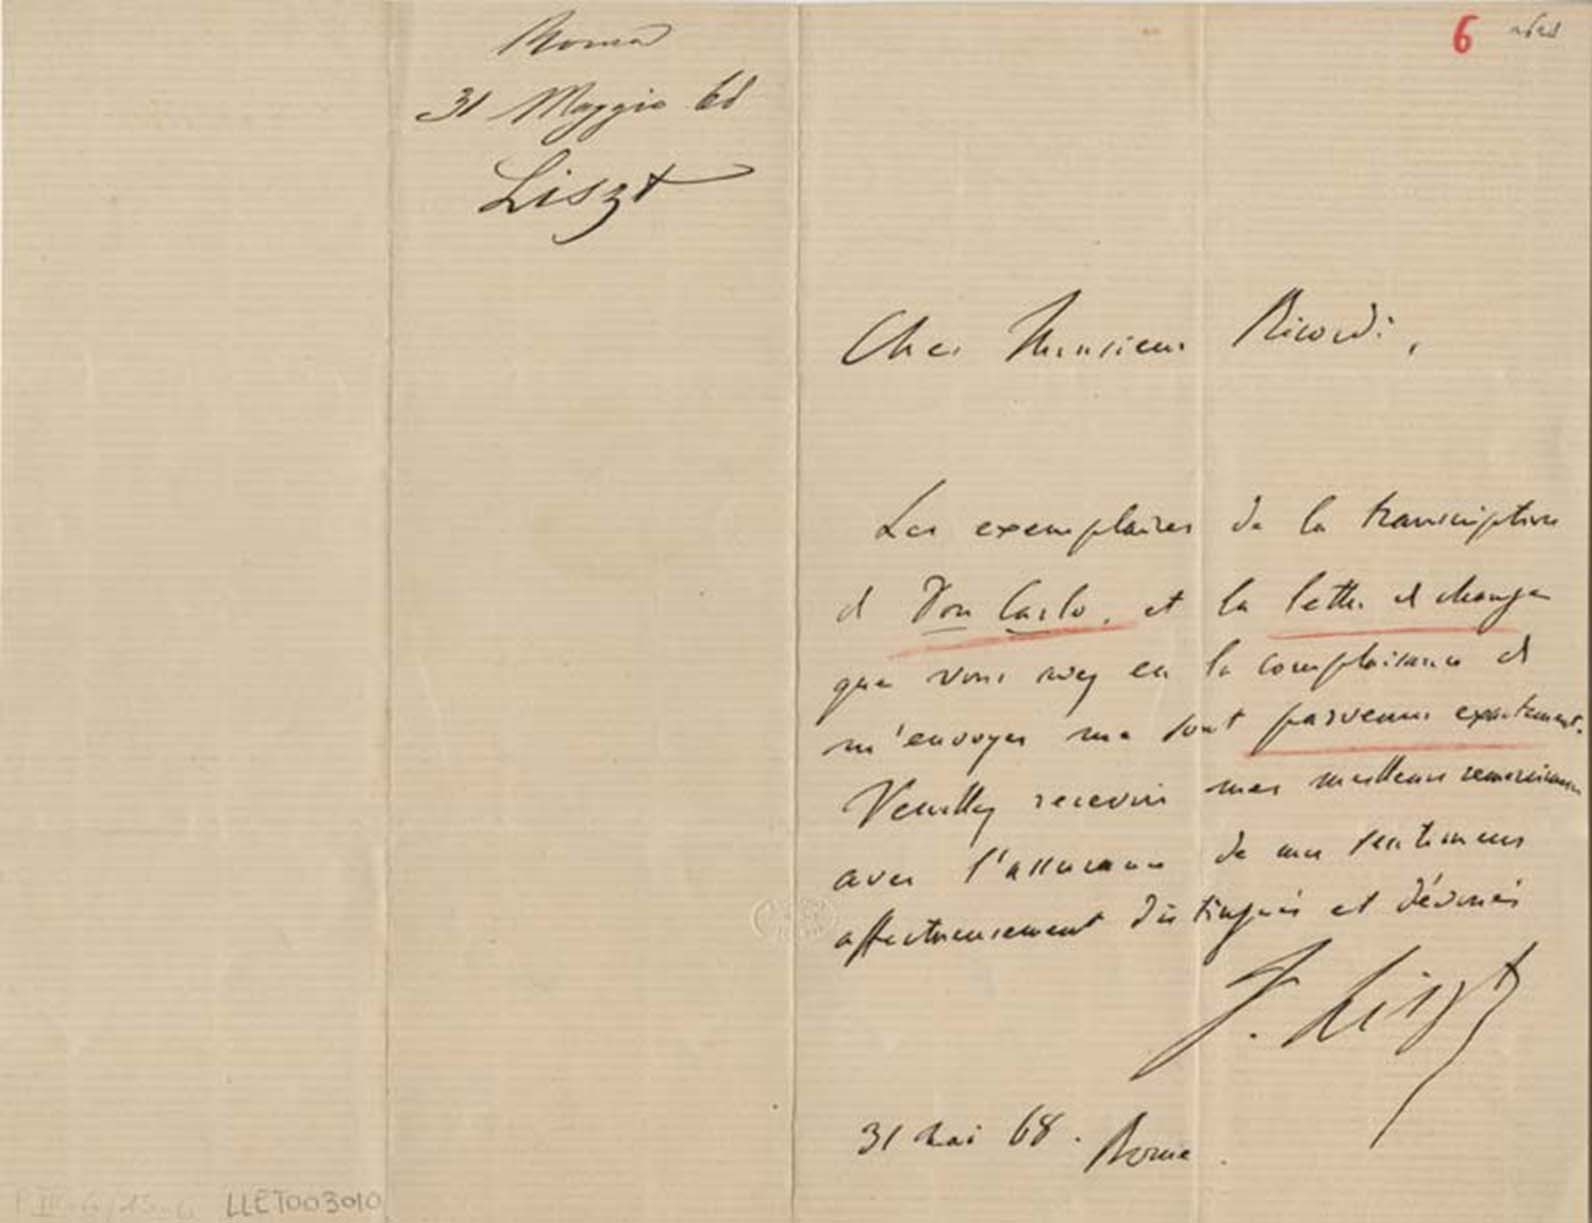 Roma
31 Maggio 68
Liszt
6
Cher Monsieur Ricordi,
Les exemplaires de la transcription
de Don Carlo, et la lettre de change
que vous avez eu la complaisance de
m'envoyer me sont parvenus exactement.
Veuillez recevoir mes meilleurs remerciemens
avec l'assurance de mes sentimens
affectueusement distingués et dévoués
F. Liszt
31 Mai 68. Rome.
LLET003010